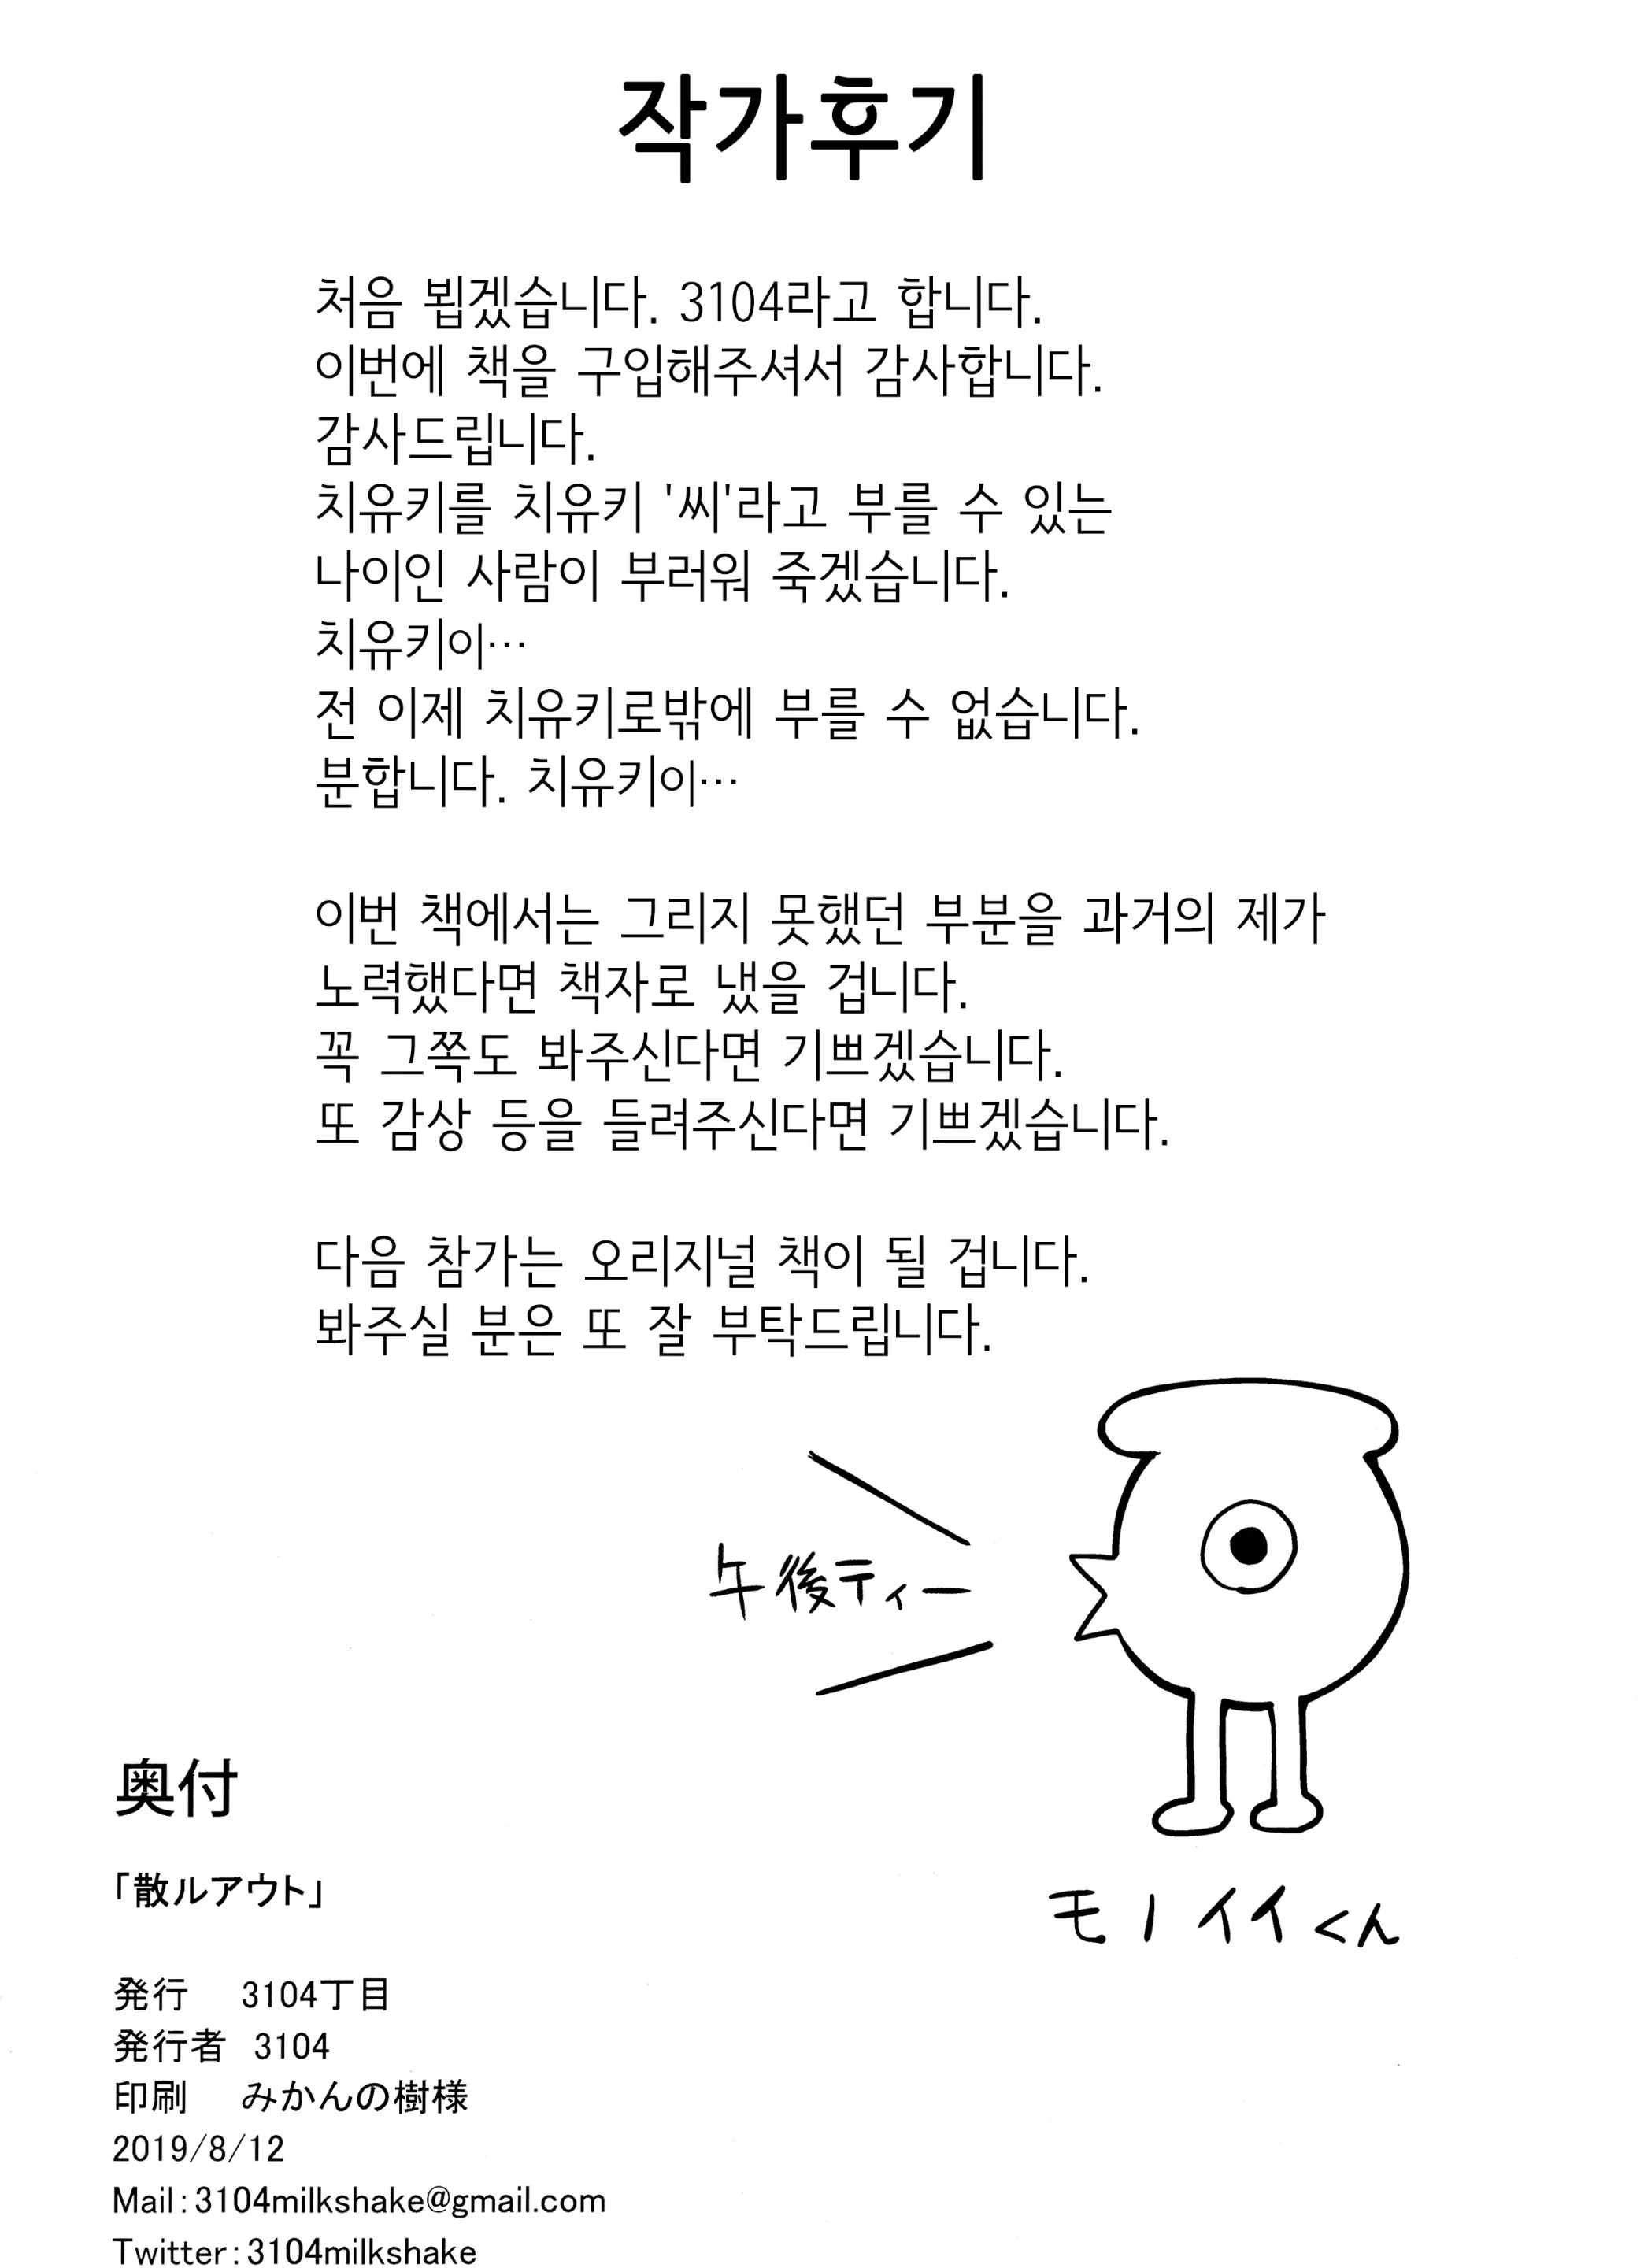 작가후기
처음 뵙겠습니다. 3104라고 합니다.
이번에 책을 구입해주셔서 감사합니다.
감사드립니다.
치유키를 치유키 '씨'라고 부를 수 있는
나이인 사람이 부러워 죽겠습니다.
치유키이…
전 이제 치유키로밖에 부를 수 없습니다.
분합니다. 치유키이…
이번 책에서는 그리지 못했던 부분을 과거의 제가
노력했다면 책자로 냈을 겁니다.
꼭 그쪽도 봐주신다면 기쁘겠습니다.
또 감상 등을 들려주신다면 기쁘겠습니다.
다음 참가는 오리지널 책이 될 겁니다.
봐주실 분은 또 잘 부탁드립니다.
午後ティー
モノイイくん
奥付
「散ルアウト」
発行 3104丁目
発行者 3104
印刷 みかんの樹様
2019/8/12
Mail:3104milkshake@gmail.com
Twitter:3104milkshake